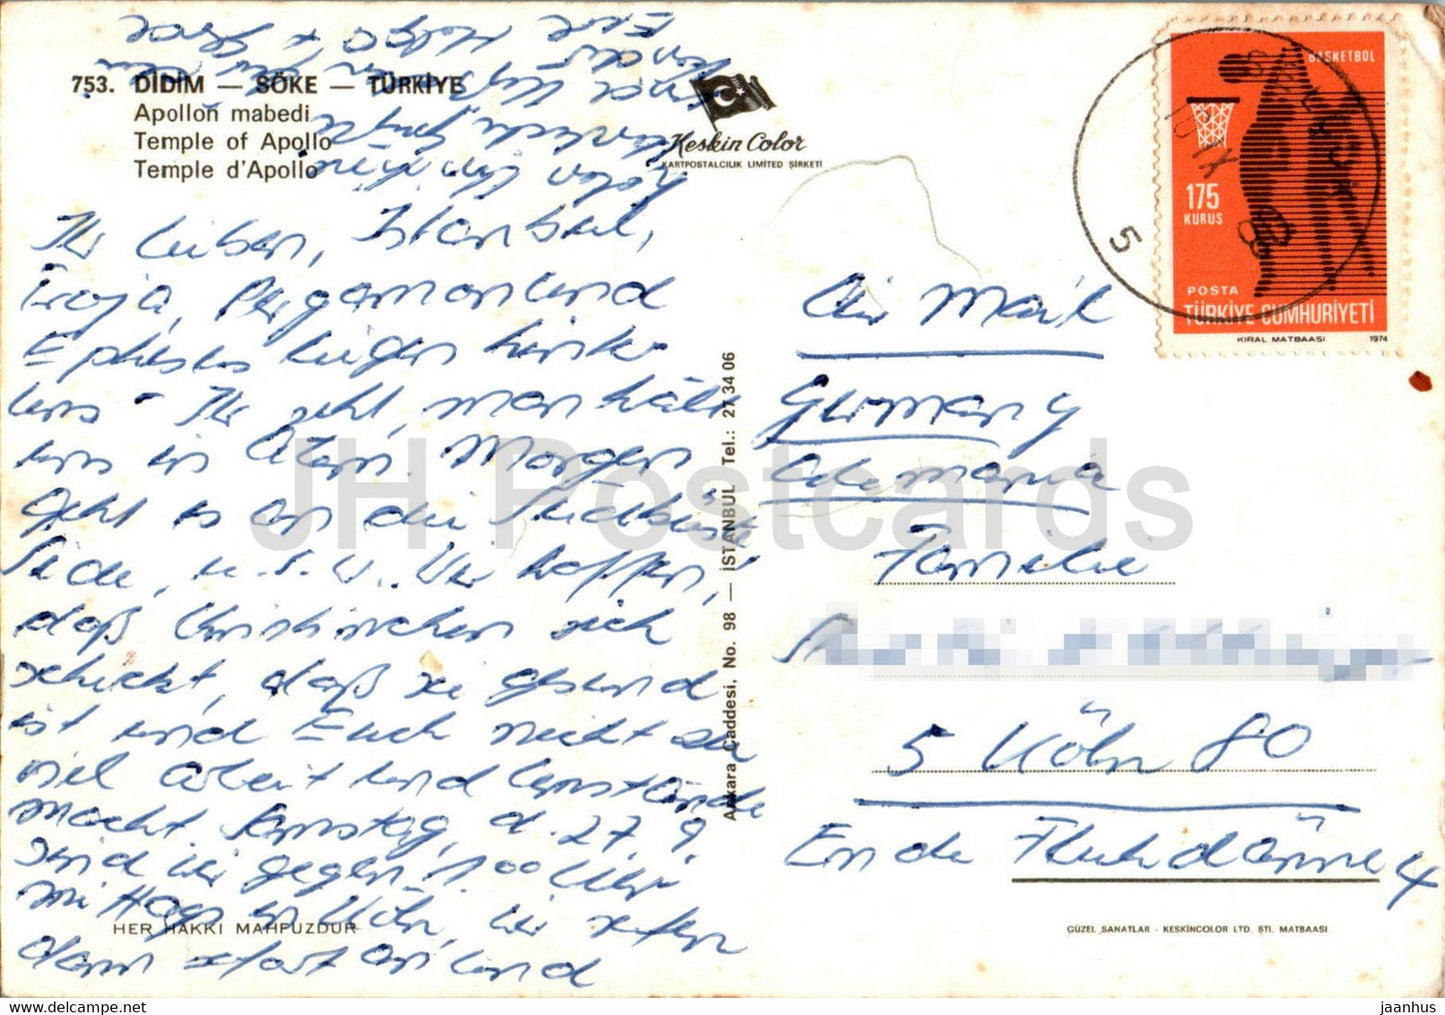 753. DİDİM — SÖKE — TÜRKİYE
Apollon mabedi
Temple of Apollo
Temple d'Apollo
Keskin Color
KARTPOSTALCILIK LIMITED ŞİRKETİ
Ihr Lieben, Istanbul,
Troja, Pergamon und
Ephesus liegen hinter
uns - Ihr seht, man hält
uns in Atem. Morgen
geht es an die Südküste,
Side, u.s.w. Wir hoffen,
daß sich
schickt, daß sie gesund
ist und Euch nicht zu
viel Arbeit und Umstände
macht. Samstag, d. 27.9.
sind wir gegen 1.00 Uhr
mittags in Köln, wir rufen
dann sofort an und
holen
Eure
HER HAKKI MAHFUZDUR
Ankara Caddesi, No. 98 — İSTANBUL Tel.: 27 34 06
BASKETBOL
175
KURUS
POSTA
TÜRKİYE CUMHURİYETİ
KIRAL MATBAASI 1974
5
Air Mail
Germany
Alemania
Familie
5 Köln 80
Ende Flehdänne 4
GÜZEL SANATLAR - KESKİNCOLOR LTD. ŞTİ. MATBAASI
JH Postcards
jaanhus
https://jhpostcards.com